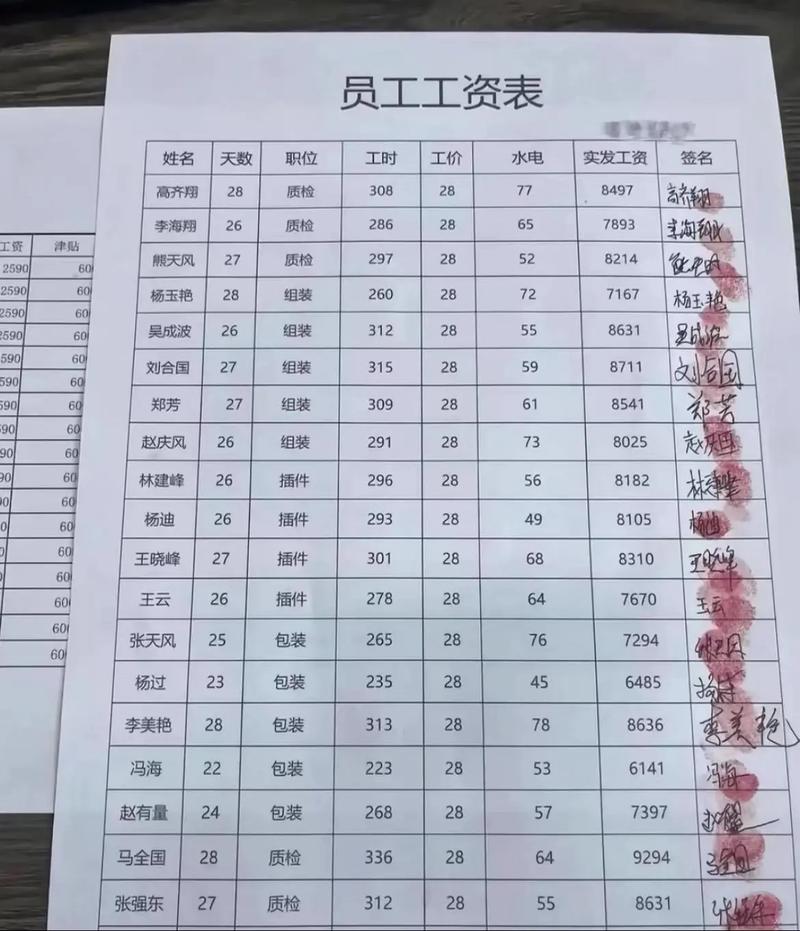 工资 津贴
2590 60
2590 60
2590 60
2590 60
590 60
590 60
590 60
590 60
90 60
90 60
0 60
0 60
60
60
60
60
60
员工工资表
姓名 天数 职位 工时 工价 水电 实发工资 签名
高齐翔 28 质检 308 28 77 8497 高齐翔
李海翔 26 质检 286 28 65 7893 李海翔
熊天风 27 质检 297 28 52 8214
杨玉艳 28 组装 260 28 72 7167 杨玉艳
吴成波 26 组装 312 28 55 8631
刘合国 27 组装 315 28 59 8711 刘合国
郑芳 27 组装 309 28 61 8541 郑芳
赵庆风 26 组装 291 28 73 8025
林建峰 26 插件 296 28 56 8182 林建峰
杨迪 26 插件 293 28 49 8105 杨迪
王晓峰 27 插件 301 28 68 8310 王晓峰
王云 26 插件 278 28 64 7670 王云
张天风 25 包装 265 28 76 7294
杨过 23 包装 235 28 45 6485
李美艳 28 包装 313 28 78 8636 李美艳
冯海 22 包装 223 28 53 6141 冯海
赵有量 24 包装 268 28 57 7397
马全国 28 质检 336 28 64 9294
张强东 27 质检 312 28 55 8631